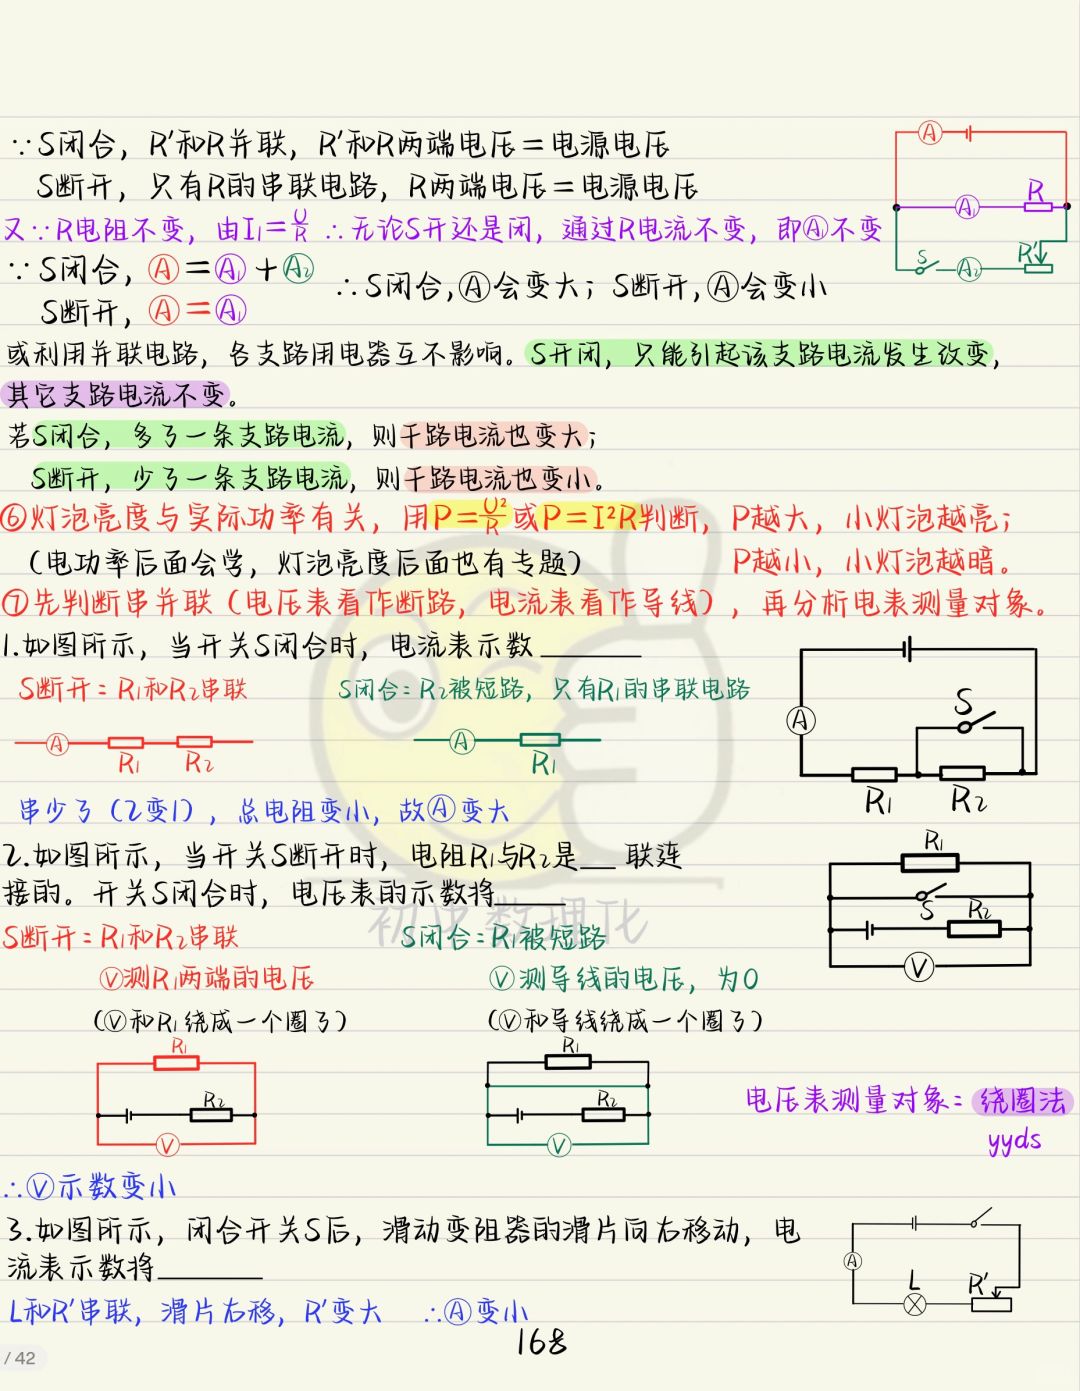 ∵S闭合，R'和R并联，R'和R两端电压＝电源电压
S断开，只有R的串联电路，R两端电压＝电源电压
又∵R电阻不变，由I₁＝U/R ∴无论S开还是闭，通过R电流不变，即Ⓐ不变
∵S闭合，Ⓐ＝Ⓐ₁＋Ⓐ₂
S断开，Ⓐ＝Ⓐ₁
∴S闭合,Ⓐ会变大；S断开,Ⓐ会变小
A
A₁
R
S
A₂
R'
或利用并联电路，各支路用电器互不影响。S开闭，只能引起该支路电流发生改变，
其它支路电流不变。
若S闭合，多了一条支路电流，则干路电流也变大；
S断开，少了一条支路电流，则干路电流也变小。
⑥灯泡亮度与实际功率有关，用P＝U²/R或P＝I²R判断，P越大，小灯泡越亮；
（电功率后面会学，灯泡亮度后面也有专题） P越小，小灯泡越暗。
⑦先判断串并联（电压表看作断路，电流表看作导线），再分析电表测量对象。
1.如图所示，当开关S闭合时，电流表示数______
S断开：R₁和R₂串联
S闭合：R₂被短路，只有R₁的串联电路
A R₁ R₂
A R₁
串少了（2变1），总电阻变小，故Ⓐ变大
A
S
R₁ R₂
2.如图所示，当开关S断开时，电阻R₁与R₂是__联连
接的。开关S闭合时，电压表的示数将____
初中数理化
S断开：R₁和R₂串联
Ⓥ测R₁两端的电压
（Ⓥ和R₁绕成一个圈了）
S闭合：R₁被短路
Ⓥ测导线的电压，为0
（Ⓥ和导线绕成一个圈了）
R₁
S
R₂
V
R₁
R₂
V
R₁
R₂
V
电压表测量对象：绕圈法
yyds
∴Ⓥ示数变小
3.如图所示，闭合开关S后，滑动变阻器的滑片向右移动，电
流表示数将______
L和R'串联，滑片右移，R'变大 ∴Ⓐ变小
A
L
R'
168
/ 42